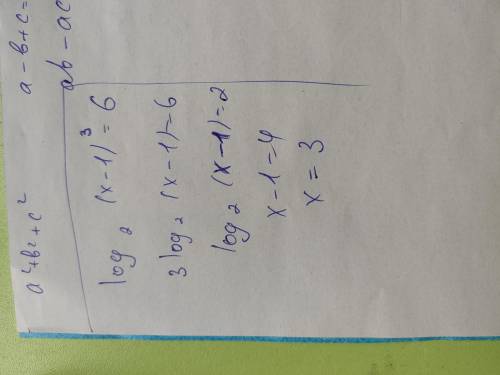 a²+b²+c²
a-b+c=
ab-ac
log₂ (x-1)³=6
3log₂ (x-1)=6
log₂ (x-1)=2
x-1=4
x=3